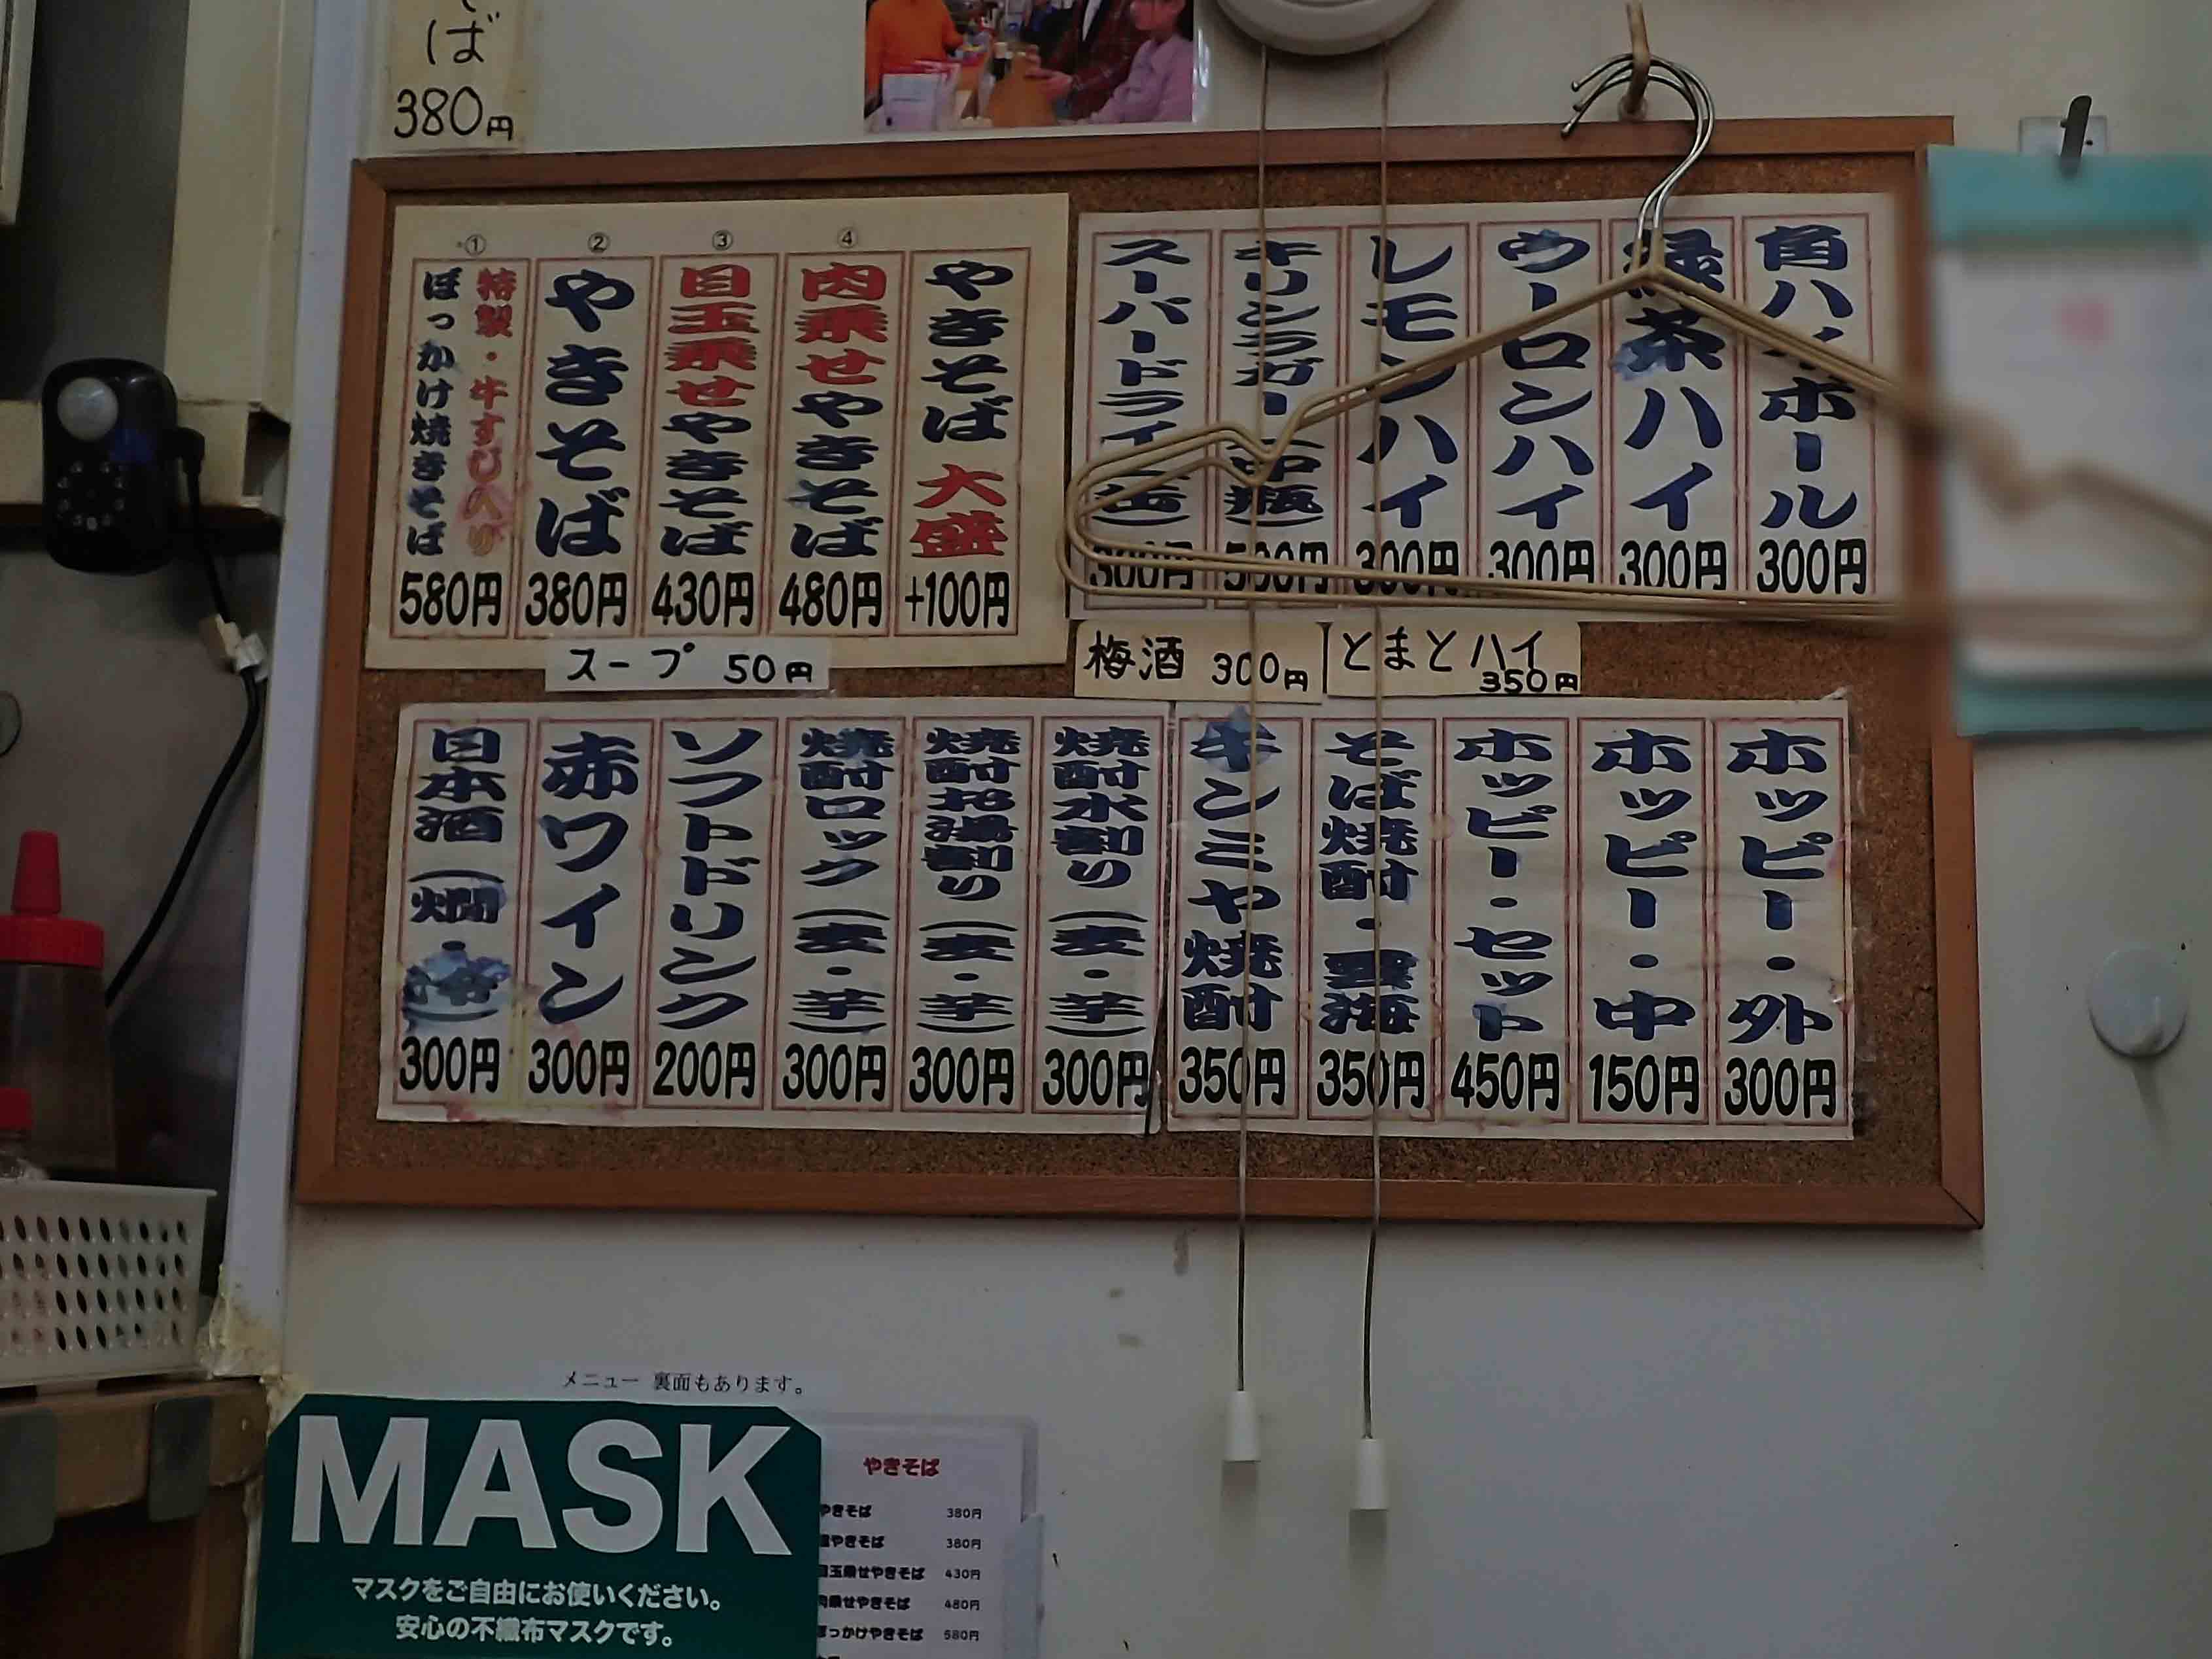 ば
380円
①
特製・牛すじ入り
ぼっかけ焼きそば
580円
②
やきそば
380円
③
目玉乗せやきそば
430円
④
肉乗せやきそば
480円
やきそば 大盛
+100円
スープ 50円
スーパードライ(缶)
300円
キリンラガー(中瓶)
500円
レモンハイ
300円
ウーロンハイ
300円
緑茶ハイ
300円
角ハイボール
300円
梅酒 300円
とまとハイ
350円
日本酒(燗・冷)
300円
赤ワイン
300円
ソフトドリンク
200円
焼酎ロック(麦・芋)
300円
焼酎お湯割り(麦・芋)
300円
焼酎水割り(麦・芋)
300円
キンミヤ焼酎
350円
そば焼酎・雲海
350円
ホッピー・セット
450円
ホッピー・中
150円
ホッピー・外
300円
メニュー 裏面もあります。
MASK
マスクをご自由にお使いください。
安心の不織布マスクです。
やきそば
やきそば 380円
やきそば 380円
目玉乗せやきそば 430円
肉乗せやきそば 480円
ぼっかけやきそば 580円